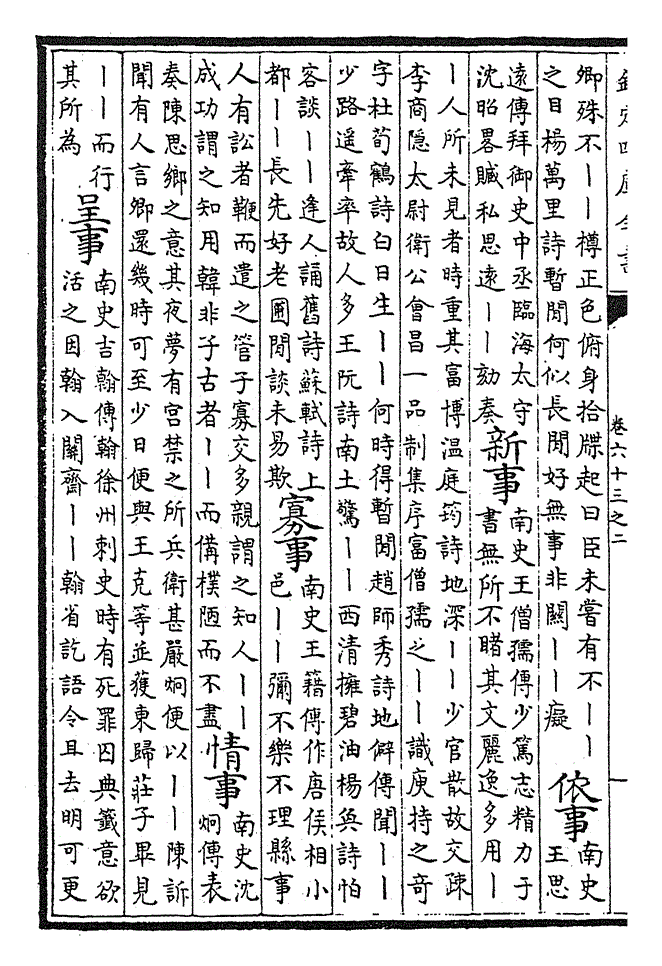 欽定四庫全書
卷六十三之二
卿殊不丨丨樽正色俯身拾牒起曰臣未嘗有不丨丨
之日楊萬里詩暫閒何似長閒好無事非關丨丨癡
依事
南史
王思
遠傳拜御史中丞臨海太守
沈昭畧贓私思遠丨丨劾奏
新事
南史王僧孺傳少篤志精力于
書無所不睹其文麗逸多用丨
丨人所未見者時重其富博溫庭筠詩地深丨丨少官散故交疎
李商隱太尉衛公會昌一品制集序富僧孺之丨丨識庾持之奇
字杜荀鶴詩白日生丨丨何時得暫閒趙師秀詩地僻傳聞丨丨
少路遙牽率故人多王阮詩南土驚丨丨西清擁碧油楊奐詩怕
容談丨丨逢人誦舊詩蘇軾詩上
都丨丨長先好老圃閒談未易欺
寡事
南史王籍傳作唐侯相小
邑丨丨彌不樂不理縣事
人有訟者鞭而遣之管子寡交多親謂之知人丨丨
成功謂之知用韓非子古者丨丨而備樸陋而不盡
情事
南史沈
炯傳表
奏陳思鄉之意其夜夢有宮禁之所兵衛甚嚴炯便以丨丨陳訴
聞有人言卿還幾時可至少日便與王克等並獲東歸莊子畢見
丨丨而行
其所為
呈事
南史吉翰傳翰徐州刺史時有死罪囚典籤意欲
活之因翰入關齋丨丨翰省訖語令且去明可更